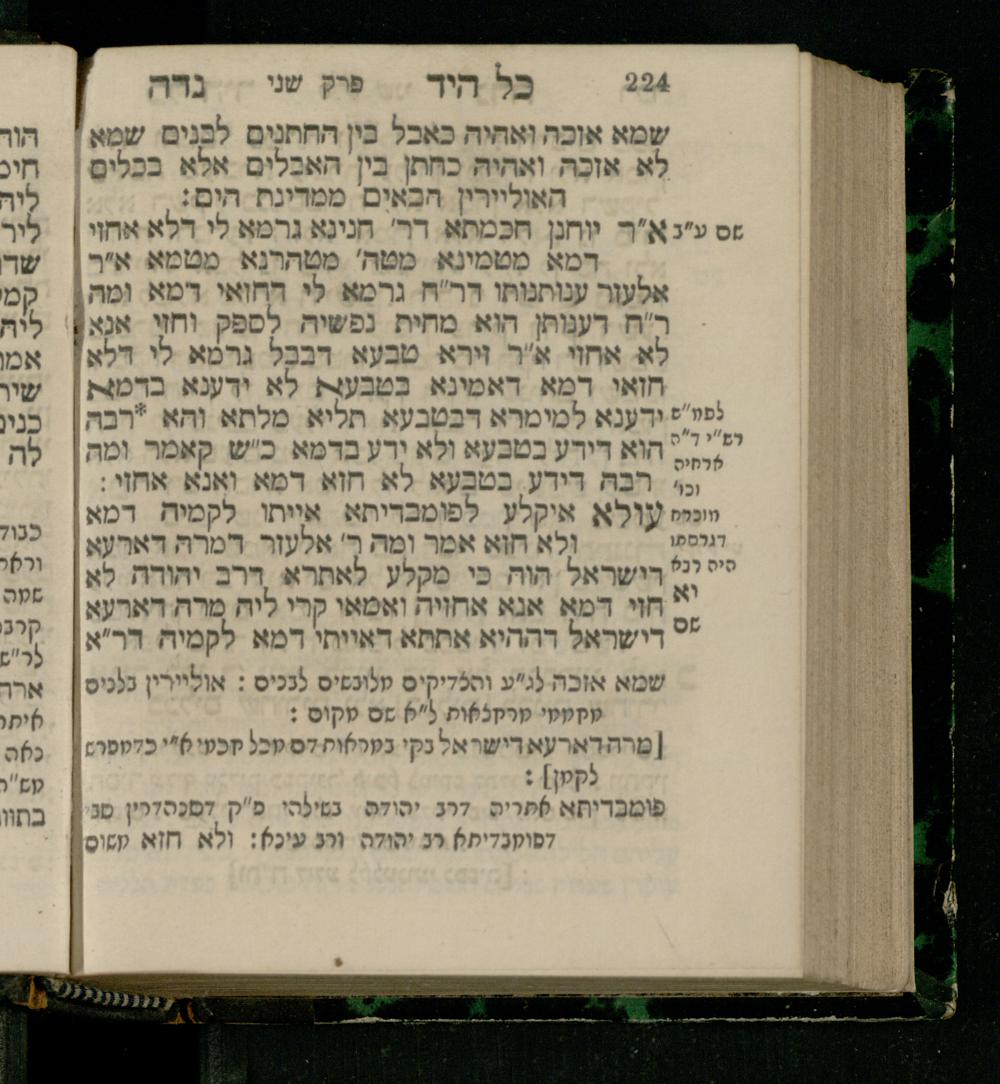 224 כל היד פרק שני נדה
שמא אזכה ואהיה כאבל בין החתנים לבנים שמא
לא אזכה ואהיה כחתן בין האבלים אלא בכלים
האוליירין הבאים ממדינת הים:
שם ע״ב א״ר יוחנן חכמתא דר׳ חנינא גרמא לי דלא אחזי
דמא מטמינא מטה׳ מטהרנא מטמא א״ר
אלעזר ענותנותו דר״ח גרמא לי דחזואי דמא ומה
ר״ח דענותן הוא מחית נפשיה לספק וחזי אנא
לא אחזי א״ר זירא טבעא דבבל גרמא לי דלא
חזאי דמא דאמינא בטבעא לא ידענא בדמא
ידענא למימרא דבטבעא תליא מלתא והא *רבה
הוא דידע בטבעא ולא ידע בדמא כ״ש קאמר ומה
רבה דידע בטבעא לא חזא דמא ואנא אחזי:
עולא איקלע לפומבדיתא אייתו לקמיה דמא
ולא חזא אמר ומה ר׳ אלעזר דמרה דארעא
דישראל הוה כי מקלע לאתרא דרב יהודה לא
חזי דמא אנא אחזיה ואמאי קרי ליה מרה דארעא
דישראל דההיא אתתא דאייתי דמא לקמיה דר״א
לפמ״ש
רש״י ד״ה
ארחיה
וכו׳
מוכרח
דגרסתו
היה רבא
יא
שם
שמא אזכה לג״ע והצדיקים מלובשים לבנים: אוליירין בלנים
מקממי מרחצאות ל״א שם מקום:
[מרה דארעא דישראל בקי במראות דם מכל חכמי א״י כדמפרש
לקמן]:
פומבדיתא אתריה דרב יהודה בשילהי פ״ק דסנהדרין סבי
דפומבדיתא רב יהודה ורב עינא: ולא חזא משום
הוה
חימ
ליה
ליר
שדר
קמי
ליה
אמר
שיר
כנינ
לה
כבוד
וראה
שמה
קרבו
לר״ש
ארה
איתר
נאה
מש״ה
בתוו